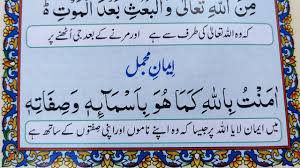 مِنَ اللّٰهِ تَعَالٰى وَالْبَعْثِ بَعْدَ الْمَوْتِ ۝
کہ وہ اللہ تعالیٰ کی طرف سے ہے اور مرنے کے بعد جی اٹھنے پر
ایمان مجمل
اٰمَنْتُ بِاللّٰهِ كَمَا هُوَ بِاَسْمَآئِهٖ وَصِفَاتِهٖ
میں ایمان لایا اللہ پر جیسا کہ وہ اپنے ناموں اور اپنی صفتوں کے ساتھ ہے